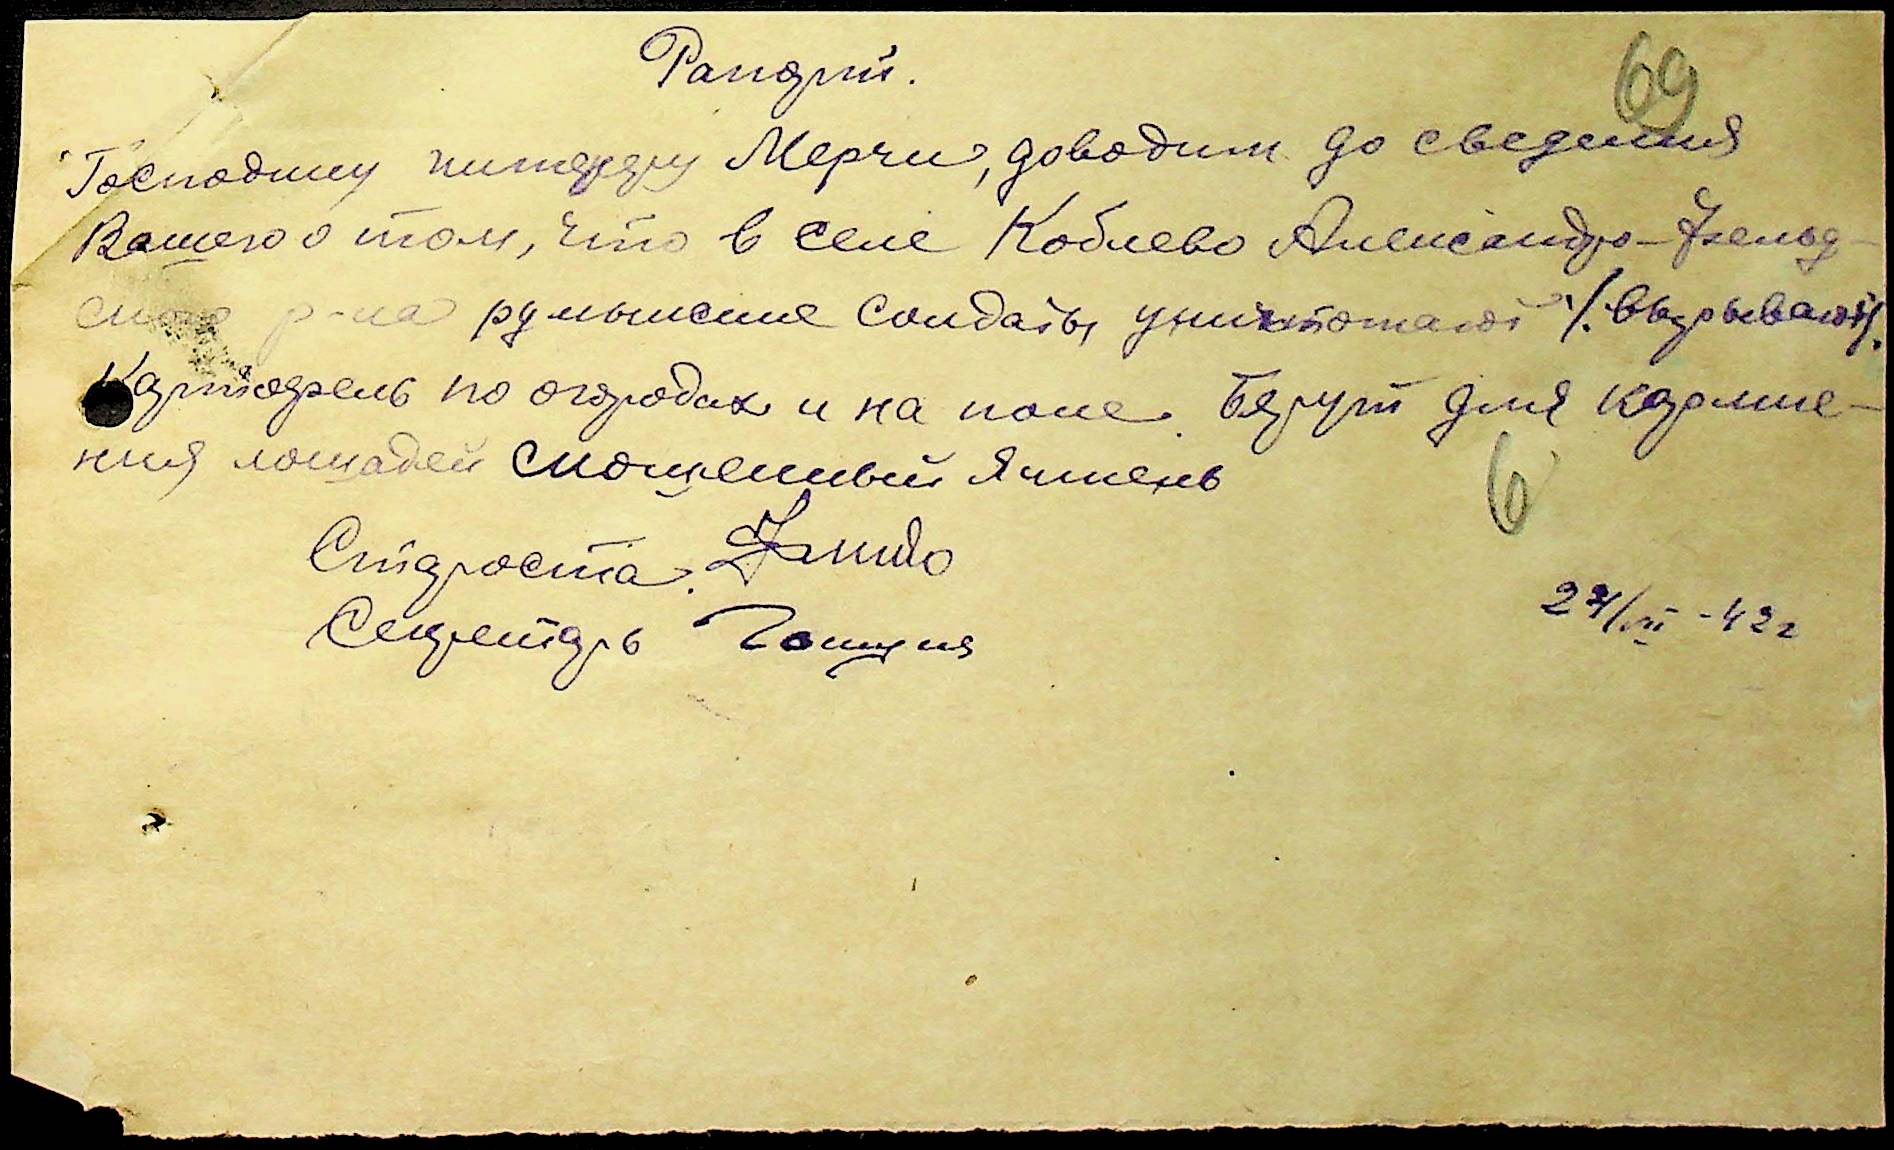 Рапорт.
69
Господину Мерчи, доводим до сведения
Вашего о том, что в селе Коблево Александр-Фельд-
ского р-на румынские солдаты уничтожают /. вырывают/.
Картофель по огородах и на поле. Берут для кормле-
ния лошадей скошенный ячмень
6
Староста.
Секретарь
27/VII -42г